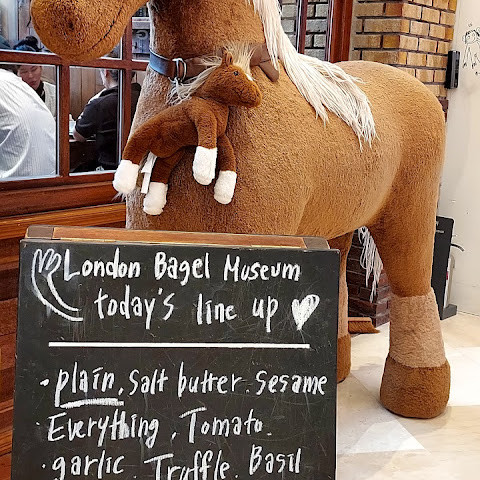 London Bagel Museum
today's line up
· plain, salt butter. sesame
· Everything, Tomato.
· garlic. Truffle. Basil